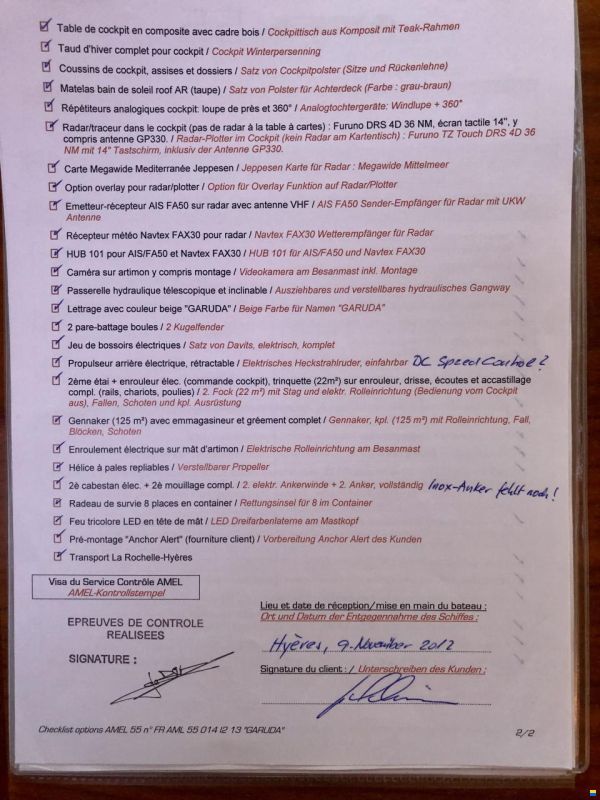 Table de cockpit en composite avec cadre bois / Cockpittisch aus Komposit mit Teak-Rahmen
Taud d'hiver complet pour cockpit / Cockpit Winterpersenning
Coussins de cockpit, assises et dossiers / Satz von Cockpitpolster (Sitze und Rückenlehne)
Matelas bain de soleil roof AR (taupe) / Satz von Polster für Achterdeck (Farbe : grau-braun)
Répétiteurs analogiques cockpit: loupe de près et 360° / Analogtochtergeräte: Windlupe + 360°
Radar/traceur dans le cockpit (pas de radar à la table à cartes) : Furuno DRS 4D 36 NM, écran tactile 14", y
compris antenne GP330. / Radar-Plotter im Cockpit (kein Radar am Kartentisch) : Furuno TZ Touch DRS 4D 36
NM mit 14" Tastschirm, inklusiv der Antenne GP330.
Carte Megawide Mediterranée Jeppesen / Jeppesen Karte für Radar : Megawide Mittelmeer
Option overlay pour radar/plotter / Option für Overlay Funktion auf Radar/Plotter
Emetteur-récepteur AIS FA50 sur radar avec antenne VHF / AIS FA50 Sender-Empfänger für Radar mit UKW
Antenne
Récepteur météo Navtex FAX30 pour radar / Navtex FAX30 Wetterempfänger für Radar
HUB 101 pour AIS/FA50 et Navtex FAX30 / HUB 101 für AIS/FA50 und Navtex FAX30
Caméra sur artimon y compris montage / Videokamera am Besanmast inkl. Montage
Passerelle hydraulique télescopique et inclinable / Ausziehbares und verstellbares hydraulisches Gangway
Lettrage avec couleur beige "GARUDA" / Beige Farbe für Namen "GARUDA"
2 pare-battage boules / 2 Kugelfender
Jeu de bossoirs électriques / Satz von Davits, elektrisch, komplet
Propulseur arrière électrique, rétractable / Elektrisches Heckstrahlruder, einfahrbar DC Speed Control ?
2ème étai + enrouleur élec. (commande cockpit), trinquette (22m²) sur enrouleur, drisse, écoutes et accastillage
compl. (rails, chariots, poulies) / 2. Fock (22 m²) mit Stag und elektr. Rolleinrichtung (Bedienung vom Cockpit
aus), Fallen, Schoten und kpl. Ausrüstung
Gennaker (125 m²) avec emmagasineur et gréement complet / Gennaker, kpl. (125 m²) mit Rolleinrichtung, Fall,
Blöcken, Schoten
Enroulement électrique sur mât d'artimon / Elektrische Rolleinrichtung am Besanmast
Hélice à pales repliables / Verstellbarer Propeller
2è cabestan élec. + 2è mouillage compl. / 2. elektr. Ankerwinde + 2. Anker, vollständig Inox-Anker fehlt noch !
Radeau de survie 8 places en container / Rettungsinsel für 8 im Container
Feu tricolore LED en tête de mât / LED Dreifarbenlaterne am Mastkopf
Pré-montage "Anchor Alert" (fourniture client) / Vorbereitung Anchor Alert des Kunden
Transport La Rochelle-Hyères
Visa du Service Contrôle AMEL
AMEL-Kontrollstempel
Lieu et date de réception/mise en main du bateau :
Ort und Datum der Entgegennahme des Schiffes :
EPREUVES DE CONTROLE
REALISEES
Hyères, 9. November 2012
SIGNATURE :
Signature du client : / Unterschreiben des Kunden :
Checklist options AMEL 55 n° FR AML 55 014 I2 13 "GARUDA"
2/2